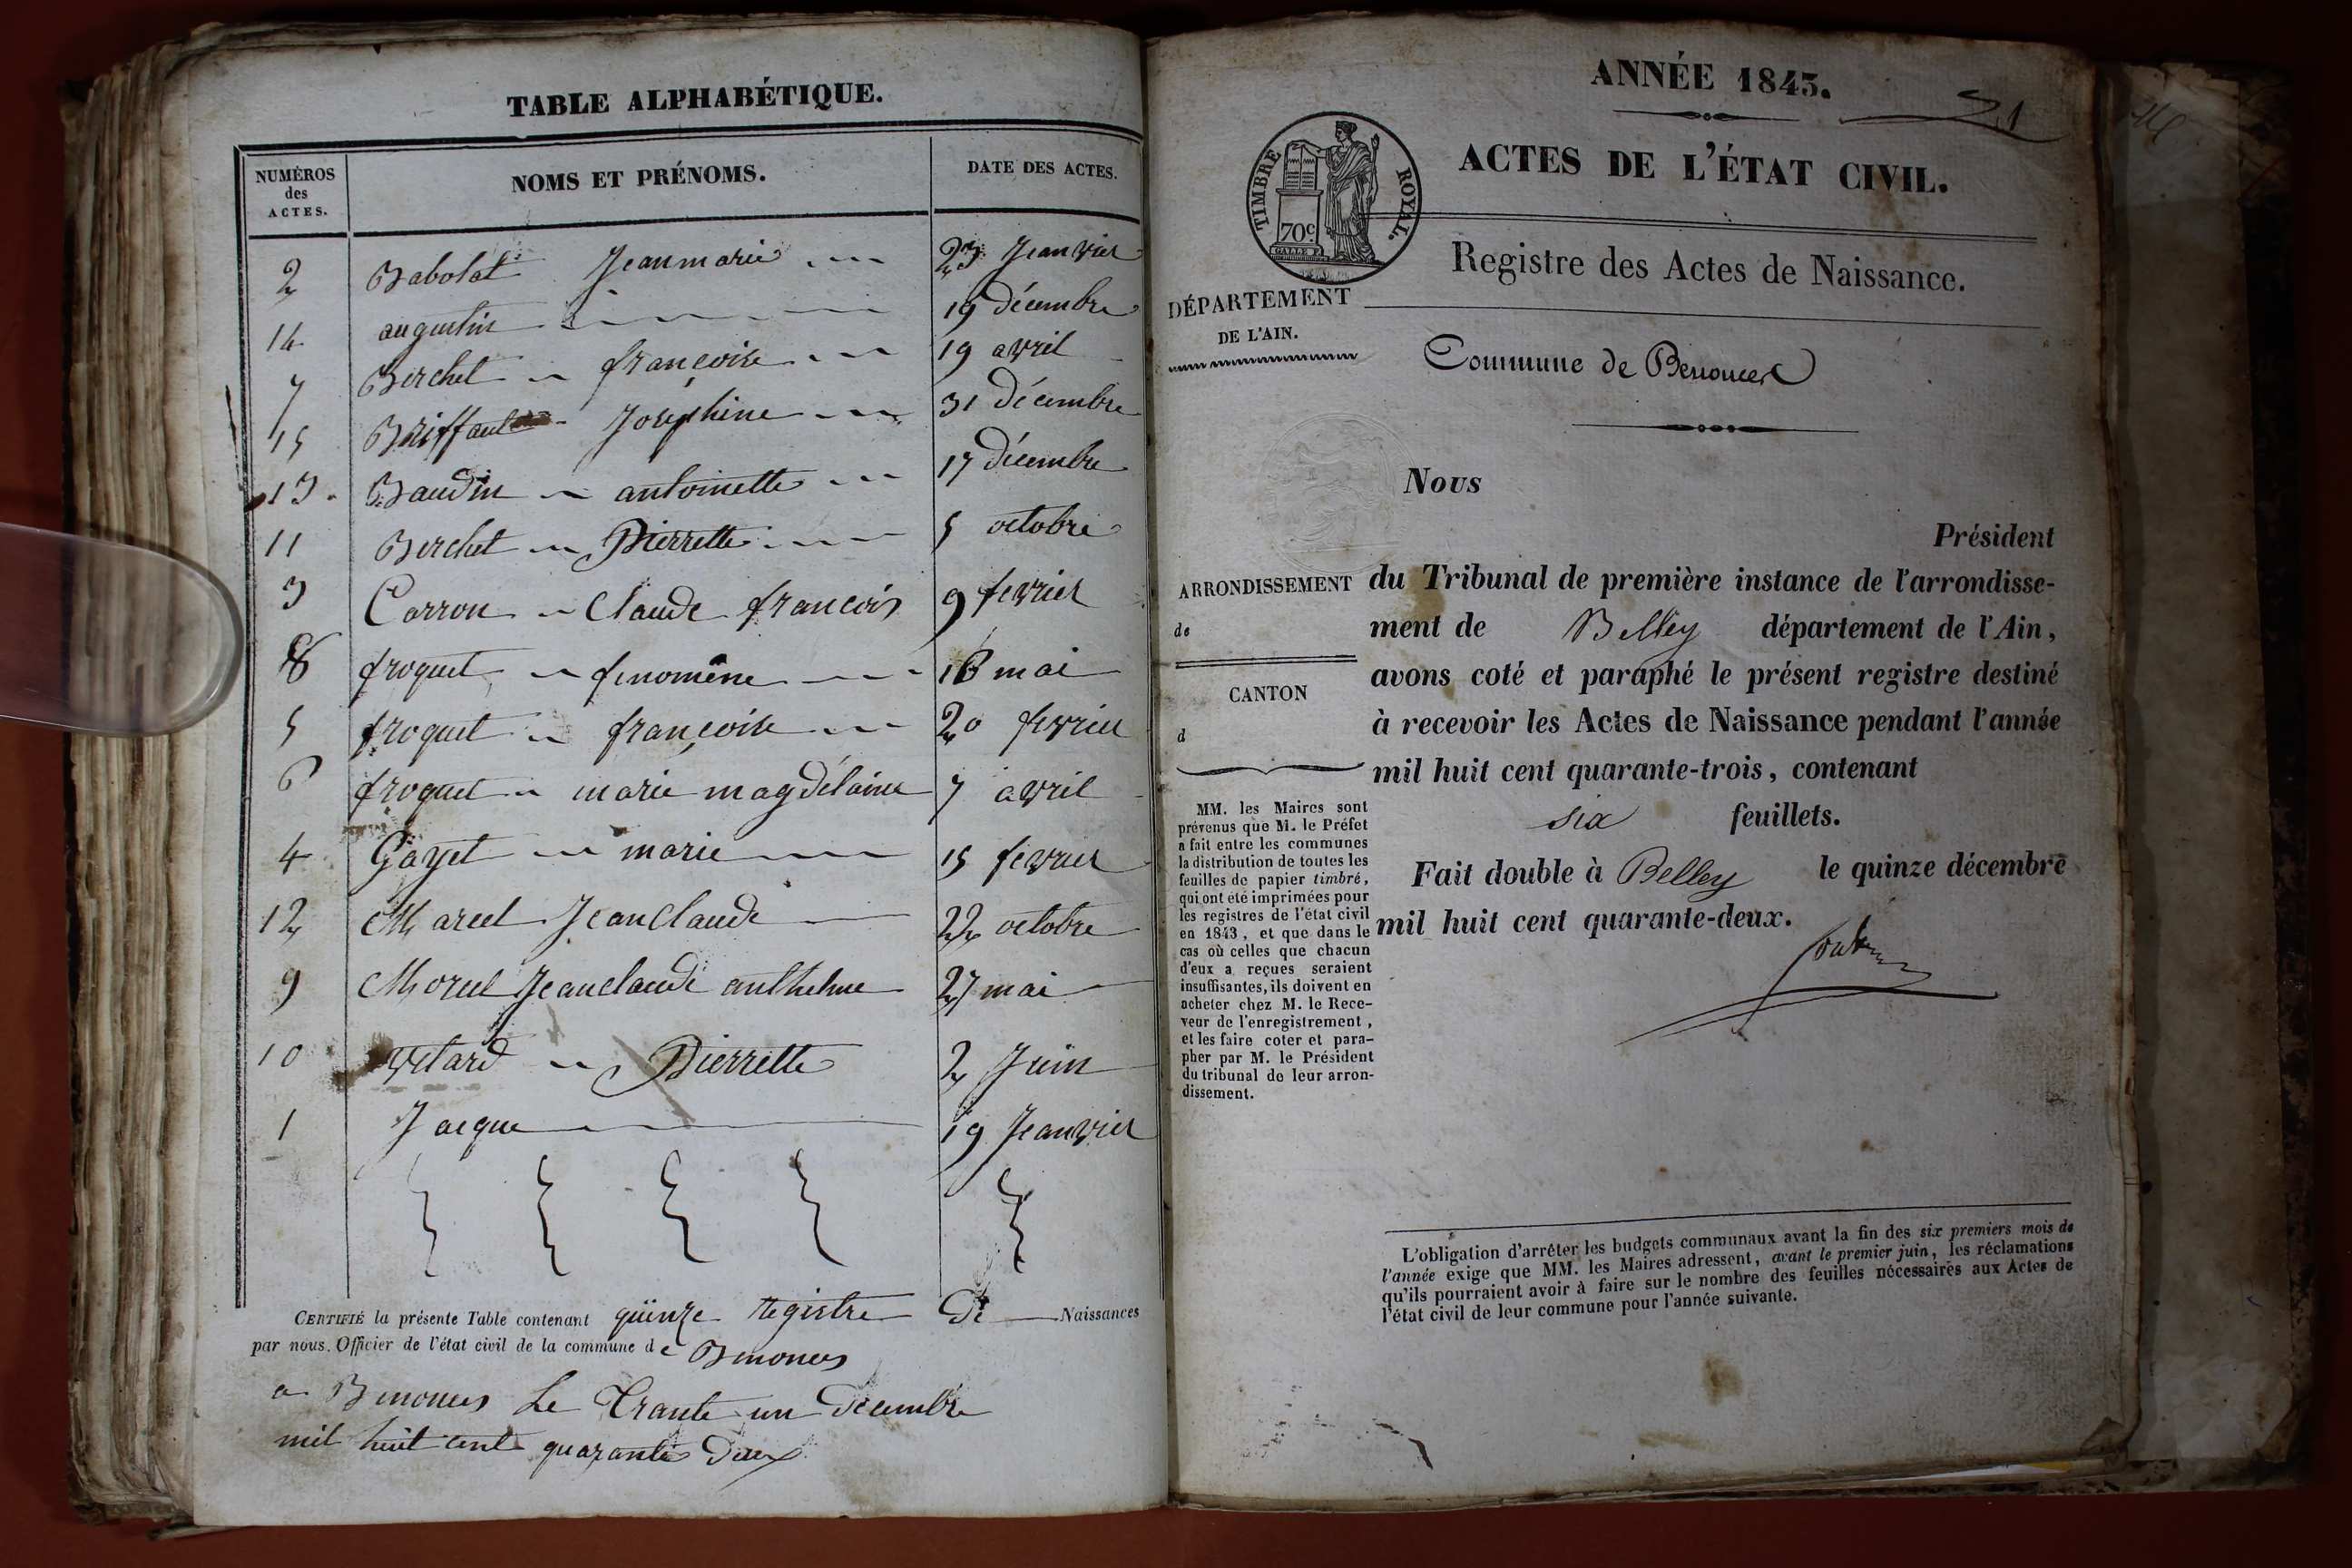 TABLE ALPHABÉTIQUE.
NUMÉROS des ACTES. NOMS ET PRÉNOMS. DATE DES ACTES.
2 Babolat Jeanmarie 23 Jeanvier
14 augustin 19 décembre
7 Berchet françoise 19 avril
15 Briffaut Josephine 31 décembre
13 Baudin antoinette 17 décembre
11 Berchet Pierrette 5 octobre
3 Carron Claude francois 9 fevrier
8 froquet fenomène 16 mai
5 froquet françoise 20 fevrier
6 froquet marie magdelaine 7 avril
4 Gayet marie 15 fevrier
12 Marcel Jeanclaude 22 octobre
9 Morel Jeanclaude anthelme 27 mai
10 Vetard Pierrette 2 Juin
1 Jacque 19 Jeanvier
CERTIFIÉ la présente Table contenant quinze registre de Naissances
par nous, Officier de l'état civil de la commune de Benonces
a Benonces Le Trante un décembre
mil huit cent quarante deux
ANNÉE 1843.
21
ACTES DE L'ÉTAT CIVIL.
TIMBRE ROYAL.
70c
Registre des Actes de Naissance.
DÉPARTEMENT
DE L'AIN.
Commune de Benonces
Nous
Président
ARRONDISSEMENT
de
CANTON
d
du Tribunal de première instance de l'arrondisse-
ment de Belley département de l'Ain,
avons coté et paraphé le présent registre destiné
à recevoir les Actes de Naissance pendant l'année
mil huit cent quarante-trois, contenant
six feuillets.
Fait double à Belley le quinze décembre
mil huit cent quarante-deux.
MM. les Maires sont
prévenus que M. le Préfet
a fait entre les communes
la distribution de toutes les
feuilles de papier timbré,
qui ont été imprimées pour
les registres de l'état civil
en 1843, et que dans le
cas où celles que chacun
d'eux a reçues seraient
insuffisantes, ils doivent en
acheter chez M. le Rece-
veur de l'enregistrement,
et les faire coter et para-
pher par M. le Président
du tribunal de leur arron-
dissement.
L'obligation d'arrêter les budgets communaux avant la fin des six premiers mois de
l'année exige que MM. les Maires adressent, avant le premier juin, les réclamations
qu'ils pourraient avoir à faire sur le nombre des feuilles nécessaires aux Actes de
l'état civil de leur commune pour l'année suivante.